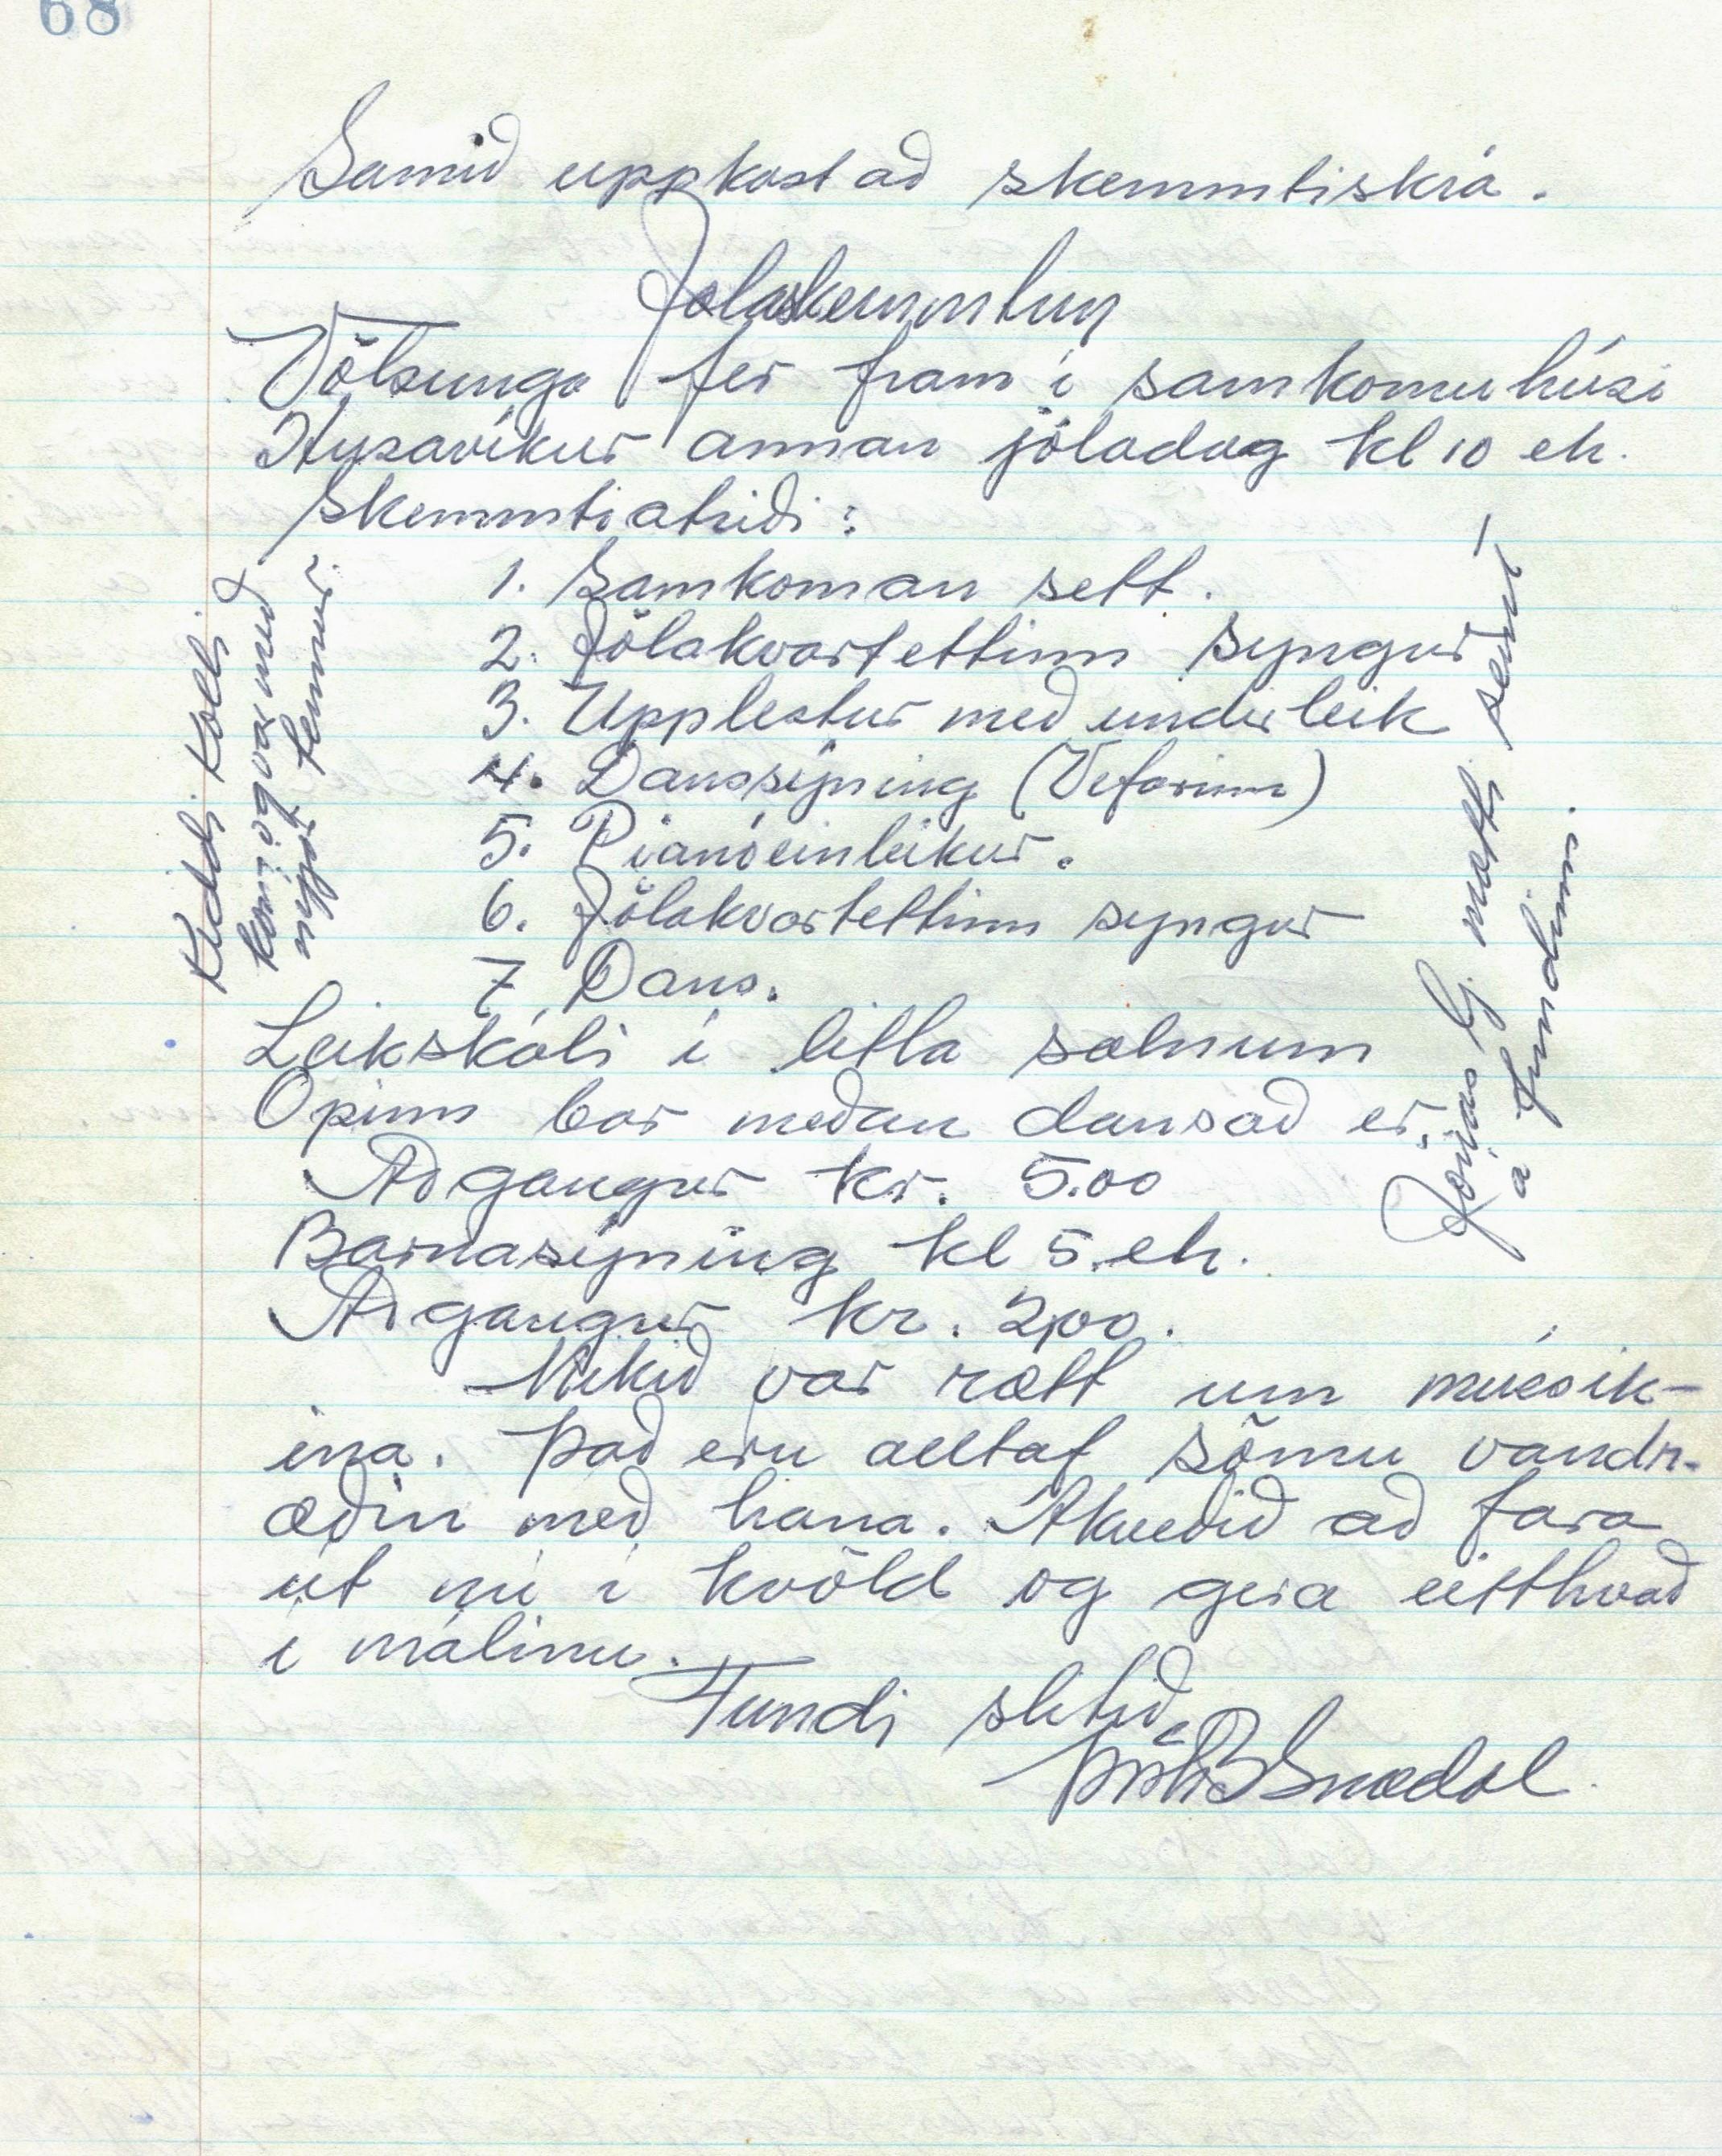 68
Samið uppkast að skemmtiskrá.
Jólaskemmtun
Völsunga fer fram í samkomuhúsi
Húsavíkur annan jóladag kl 10 eh.
Skemmtiatriði:
1. Samkoman sett.
2. Jólakvartettinn syngur
3. Upplestur með undirleik
4. Danssýning (Vefarinn)
5. Píanóeinleikur.
6. Jólakvartettinn syngur
7 Dans.
Leikskóli í litla salnum
Opinn bar meðan dansað er.
Aðgangur kr. 5.00
Barnasýning kl 5. eh.
Aðgangur kr. 2,00.
Mikið var rætt um músik-
ina. Það eru alltaf sömu vandr-
æðin með hana. Ákveðið að fara
út nú í kvöld og gera eitthvað
í málinu.
Fundi slitið
Snædal
Kiddi Kolli
kom og var með
nýjar tennur.
Jónas mætti seint
á fundinn.